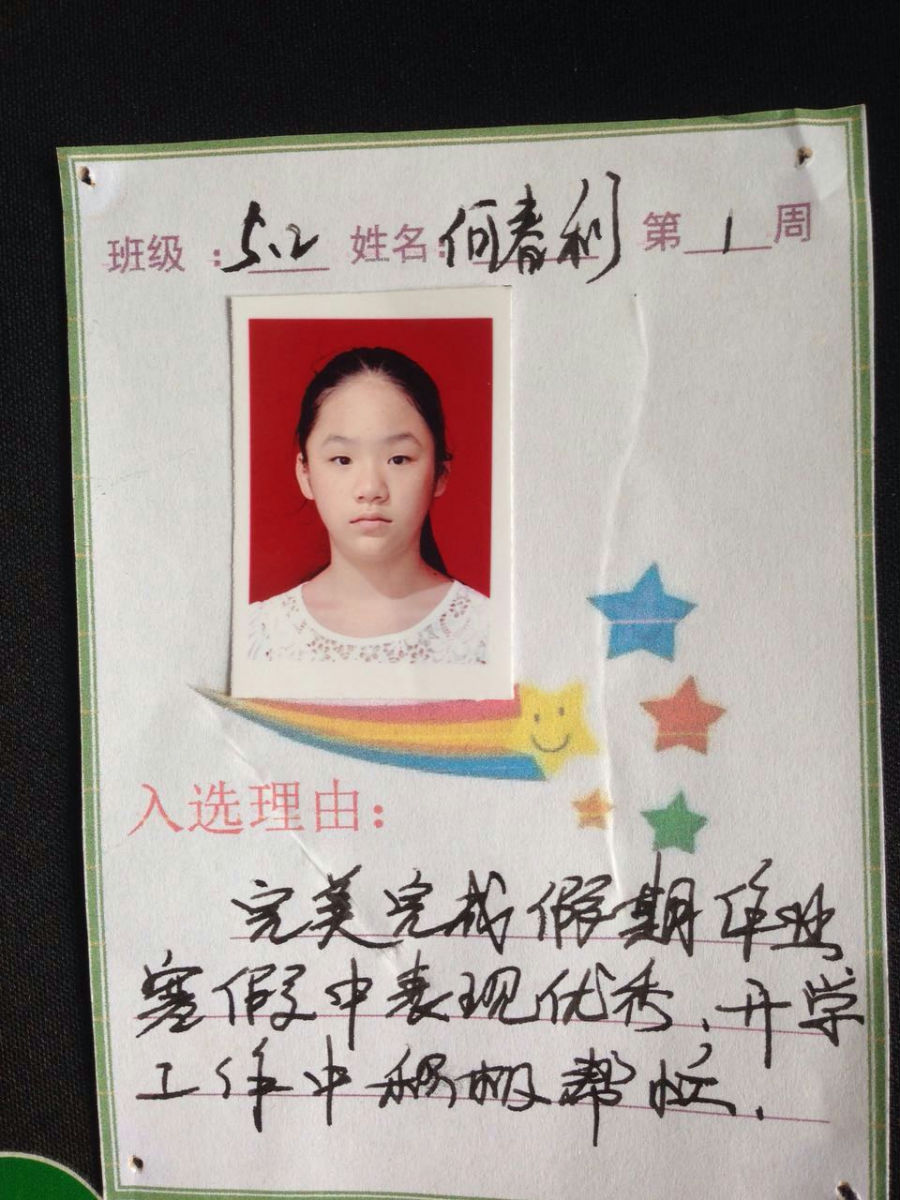 班级：5.2 姓名：何春利 第1周
入选理由：
完美完成假期作业
寒假中表现优秀，开学
工作中积极帮忙．